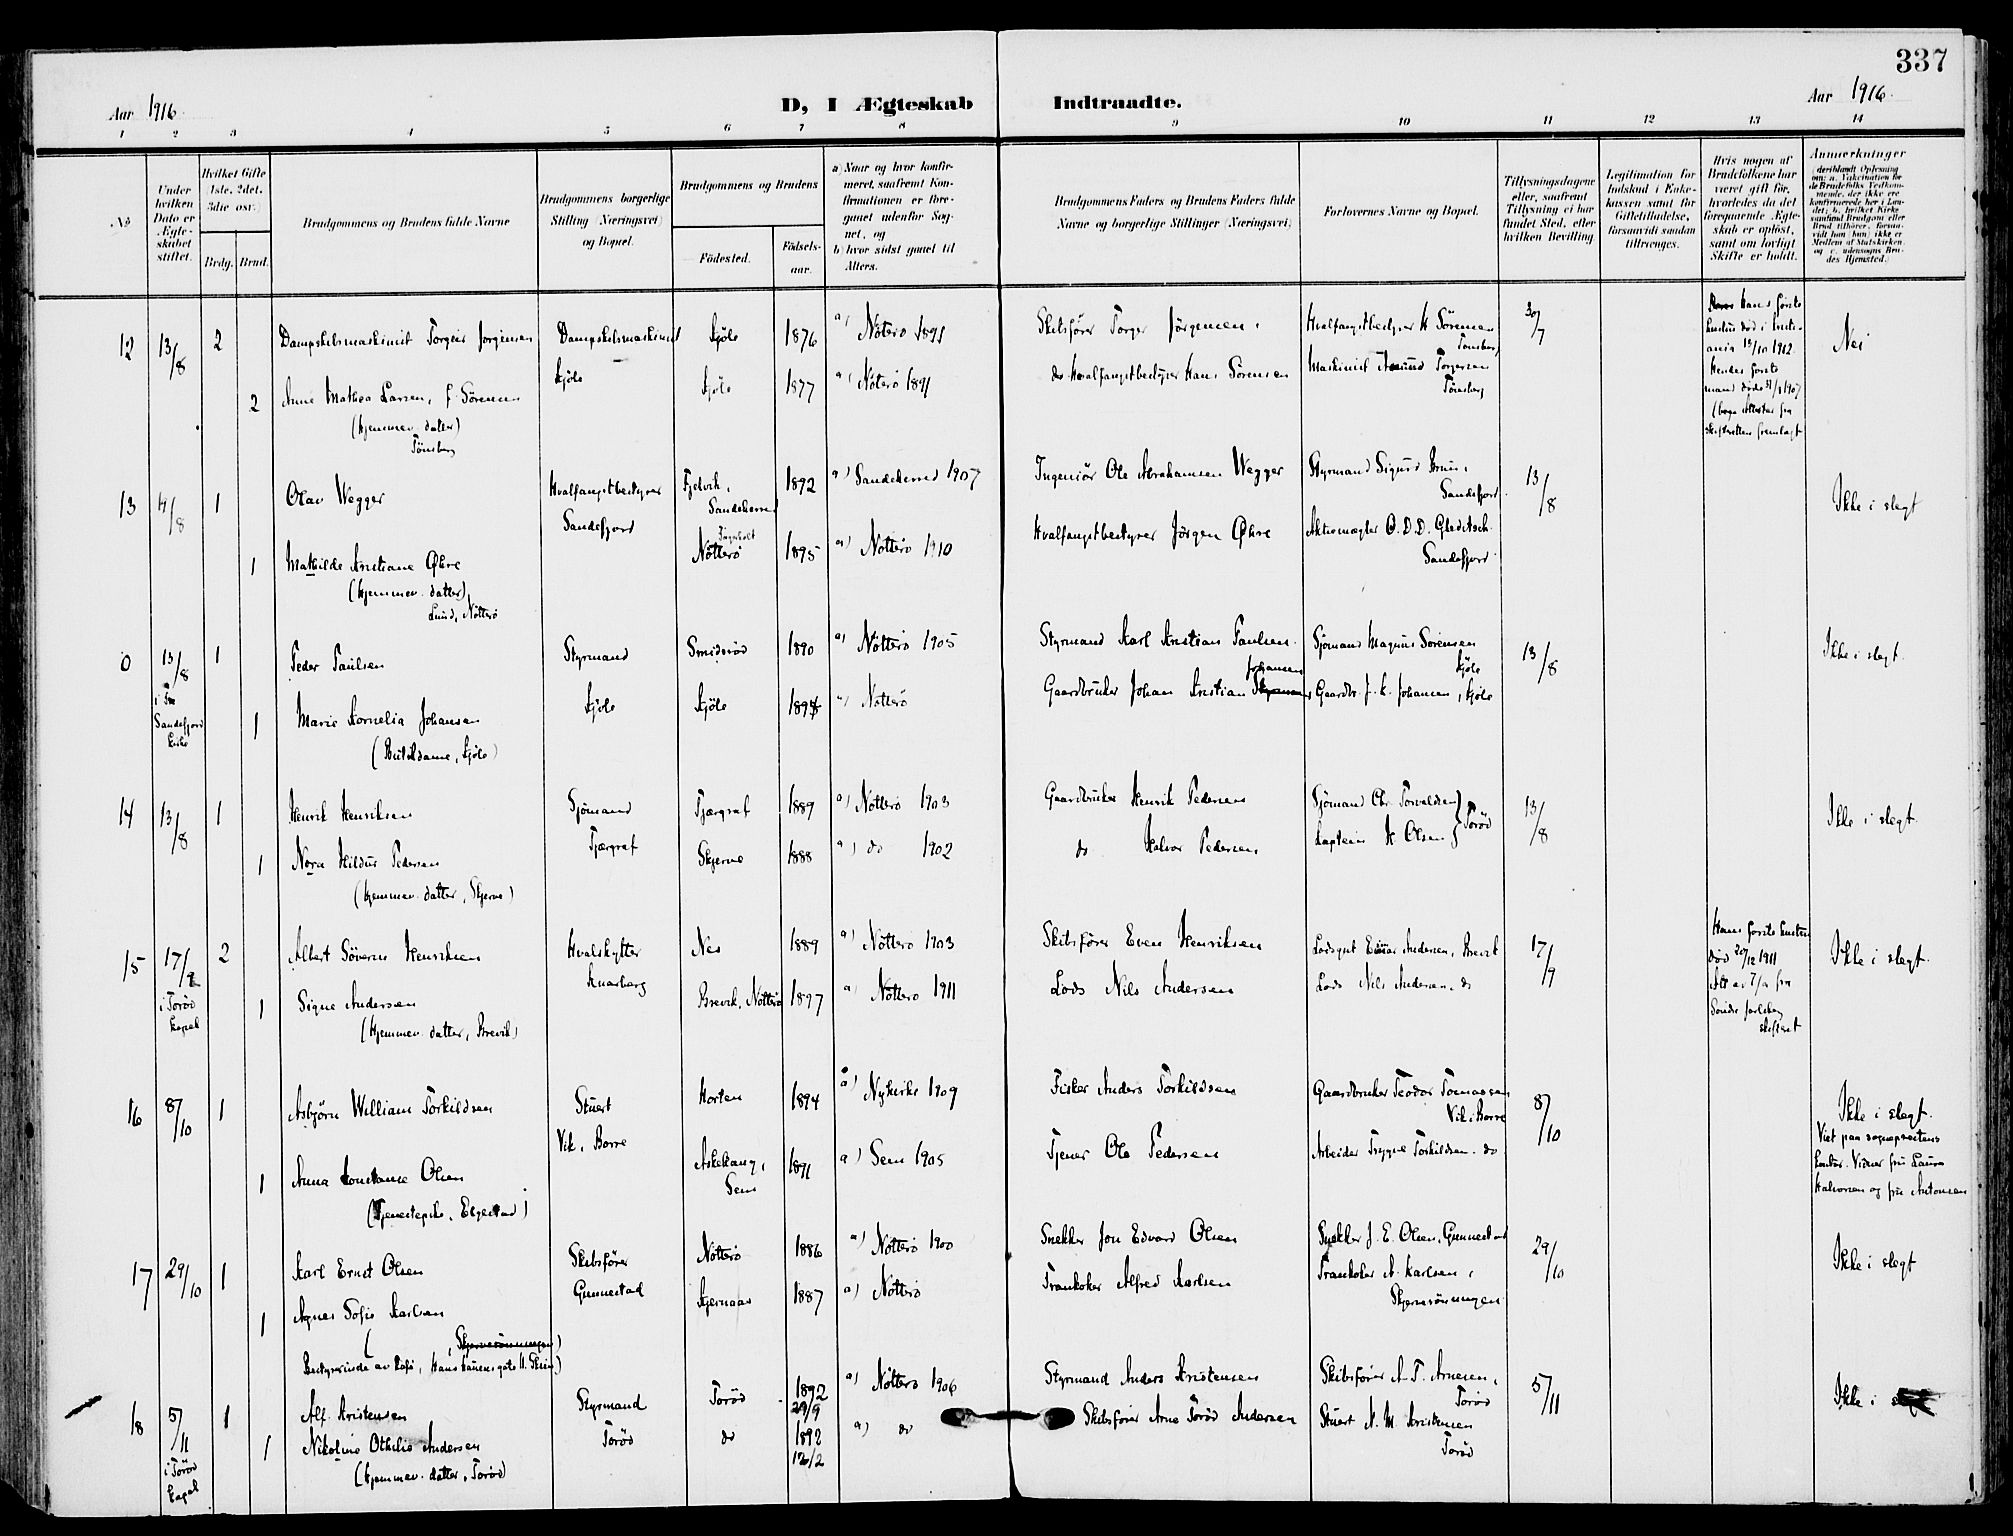 337
Aar 1916.
D, I Ægteskab Indtraadte.
Aar 1916.
1 2 3 4 5 6 7 8 9 10 11 12 13 14
No
Under hvilken Dato er Ægteskabet stiftet.
Hvilket Gifte 1ste, 2det, 3die osv.)
Brdg. Brud.
Brudgommens og Brudens fulde Navne
Brudgommens borgerlige Stilling (Næringsvei) og Bopæl.
Brudgommens og Brudens
Födested.
Födsels-aar.
a) Naar og hvor konfirmeret, saafremt Konfirmationen er foreganet udenfor Sognet, og
b) hvor sidst ganet til Alters.
Brudgommens Faders og Brudens Faders fulde Navne og borgerlige Stillinger (Næringsvei)
Forlovernes Navne og Bopæl.
Tillysningsdagene eller, saafremt Tillysning ei har fundet Sted, efter hvilken Bevilling.
Legitimation for Indskud i Enkekassen samt for Giftetilladelse, forsaavidt saadan tiltrænges.
Hvis nogen af Brudefolkene har været gift för, hvorledes da det foregaaende Ægteskab er oplöst, samt om lovligt Skifte er holdt.
Anmerkninger
12 13/8 2 Dampskibsmaskinist Torger Jørgensen Dampskibsmaskinist Kjøle Kjøle 1876 a) Nøtterø 1891 Skibsfører Torger Jørgensen. Hvalfangstbestyrer H Sörensen Tønsberg 30/7 Hans første hustru død Nei
2 Anne Mathea Larsen, f. Sörensen (hjemmev. datter) Tønsberg Kjøle 1877 a) Nøtterø 1891 do Hvalfangstbestyrer Hans Sörensen Maskinist Torgersen Tønsberg Hendes første mand døde
13 4/8 1 Olav Wegger Hvalfangstbestyrer Sandefjord Fjelvik, Sandeherred 1892 a) Sandeherred 1907 Ingeniör Ole Abrahamsen Wegger Styrmand Sigurd Bruu, Sandefjord. 13/8 Ikke i slegt
1 Mathilde Kristiane Øhre (hjemmev. datter), Lund, Nøtterø Nøtterø 1895 a) Nøtterø 1910 Hvalfangstbestyrer Jörgen Øhre Aktiemægler O. D. D. Gleditsch. Sandefjord.
0 13/8 i Sandefjord kirke 1 Peder Paulsen Styrmand Kjøle Smidsrød 1890 a) Nøtterø 1905 Styrmand Karl Kristian Paulsen. Sjømand Magnus Sörensen Kjøle 13/8 Ikke i slegt.
1 Marie Kornelia Johansen (Butikdame, Kjøle) Kjøle a) Nøtterø Gaardbruker Johan Kristian Johansen Gaardbr. J. K. Johansen, Kjøle
14 13/8 1 Henrik Henriksen Sjømand Tjærgraf Tjærgraf 1889 a) Nøtterø 1903 Gaardbruker Henrik Pedersen Sjømand Chr Torvaldsen 13/8 Ikke i slegt.
1 Nora Hildur Pedersen (hjemmev. datter, Skjerve) Skjerve 1888 a) do 1902 do Halvor Pedersen. Kaptein K Olsen } Torød
15 17/9 i Torød kapel 2 Albert Söverin Henriksen Hvalskytter Knarberg Nes 1889 a) Nøtterø 1903 Skibsfører Even Henriksen Lodsgut Einar Andersen, Brevik 17/9 Hans første hustru død 20/12 1911 Ikke i slegt.
1 Signe Andersen (hjemmev. datter, Brevik) Brevik, Nøtterø 1897 a) Nøtterø 1911 Lods Nils Andersen Lods Nils Andersen. do
16 8/10 1 Asbjörn William Torkildsen Stuert Vik, Borre Horten 1894 a) Nykirke 1909 Fisker Anders Torkildsen Gaardbruker Teodor Tomassen Vik i Borre 8/10 Ikke i slegt. Viet paa sogneprestens kontor. Vidner fru Laura Halvorsen og fru Antonsen
1 Anna Konstanse Olsen (Tjenestepike, Elgestad) Askehaug, Sem 1891 a) Sem 1905 Tjener Ole Pedersen Arbeider Trygve Torkildsen. do
17 29/10 1 Karl Ernst Olsen Skibsfører Gunnestad Nøtterø 1886 a) Nøtterø 1900 Snekker Jon Edvard Olsen Snekker J. E. Olsen, Gunnestad 29/10 Ikke i slegt
1 Agnes Sofie Karlsen Bestyrerinde av Kafe, Hans Houensgate 11. Skien) Skjernaas 1887 a) Nøtterø Trankoker Alfred Karlsen Trankoker A. Karlsen,
18 5/11 i Torød kapel 1 Alf Kristensen Styrmand Torød Torød 1892 29/9 a) Nøtterø 1906 Styrmand Anders Kristensen Skibsfører A. T. Arnesen, Torød 5/11 Ikke i
1 Nikoline Othelie Andersen (hjemmev. datter, Torød) do 1892 12/2 a) do Skibsfører Arne Torød Andersen Stuert A. M. Kristensen Torød